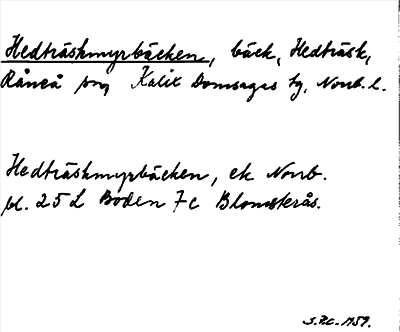 Hedträskmyrbäcken, bäck, Hedträsk,
Råneå sn, Kalix Domsagas tg, Norrb. l.
Hedträskmyrbäcken, ek Norrb.
bl. 25 L Boden 7c Blomsterås.
1959.